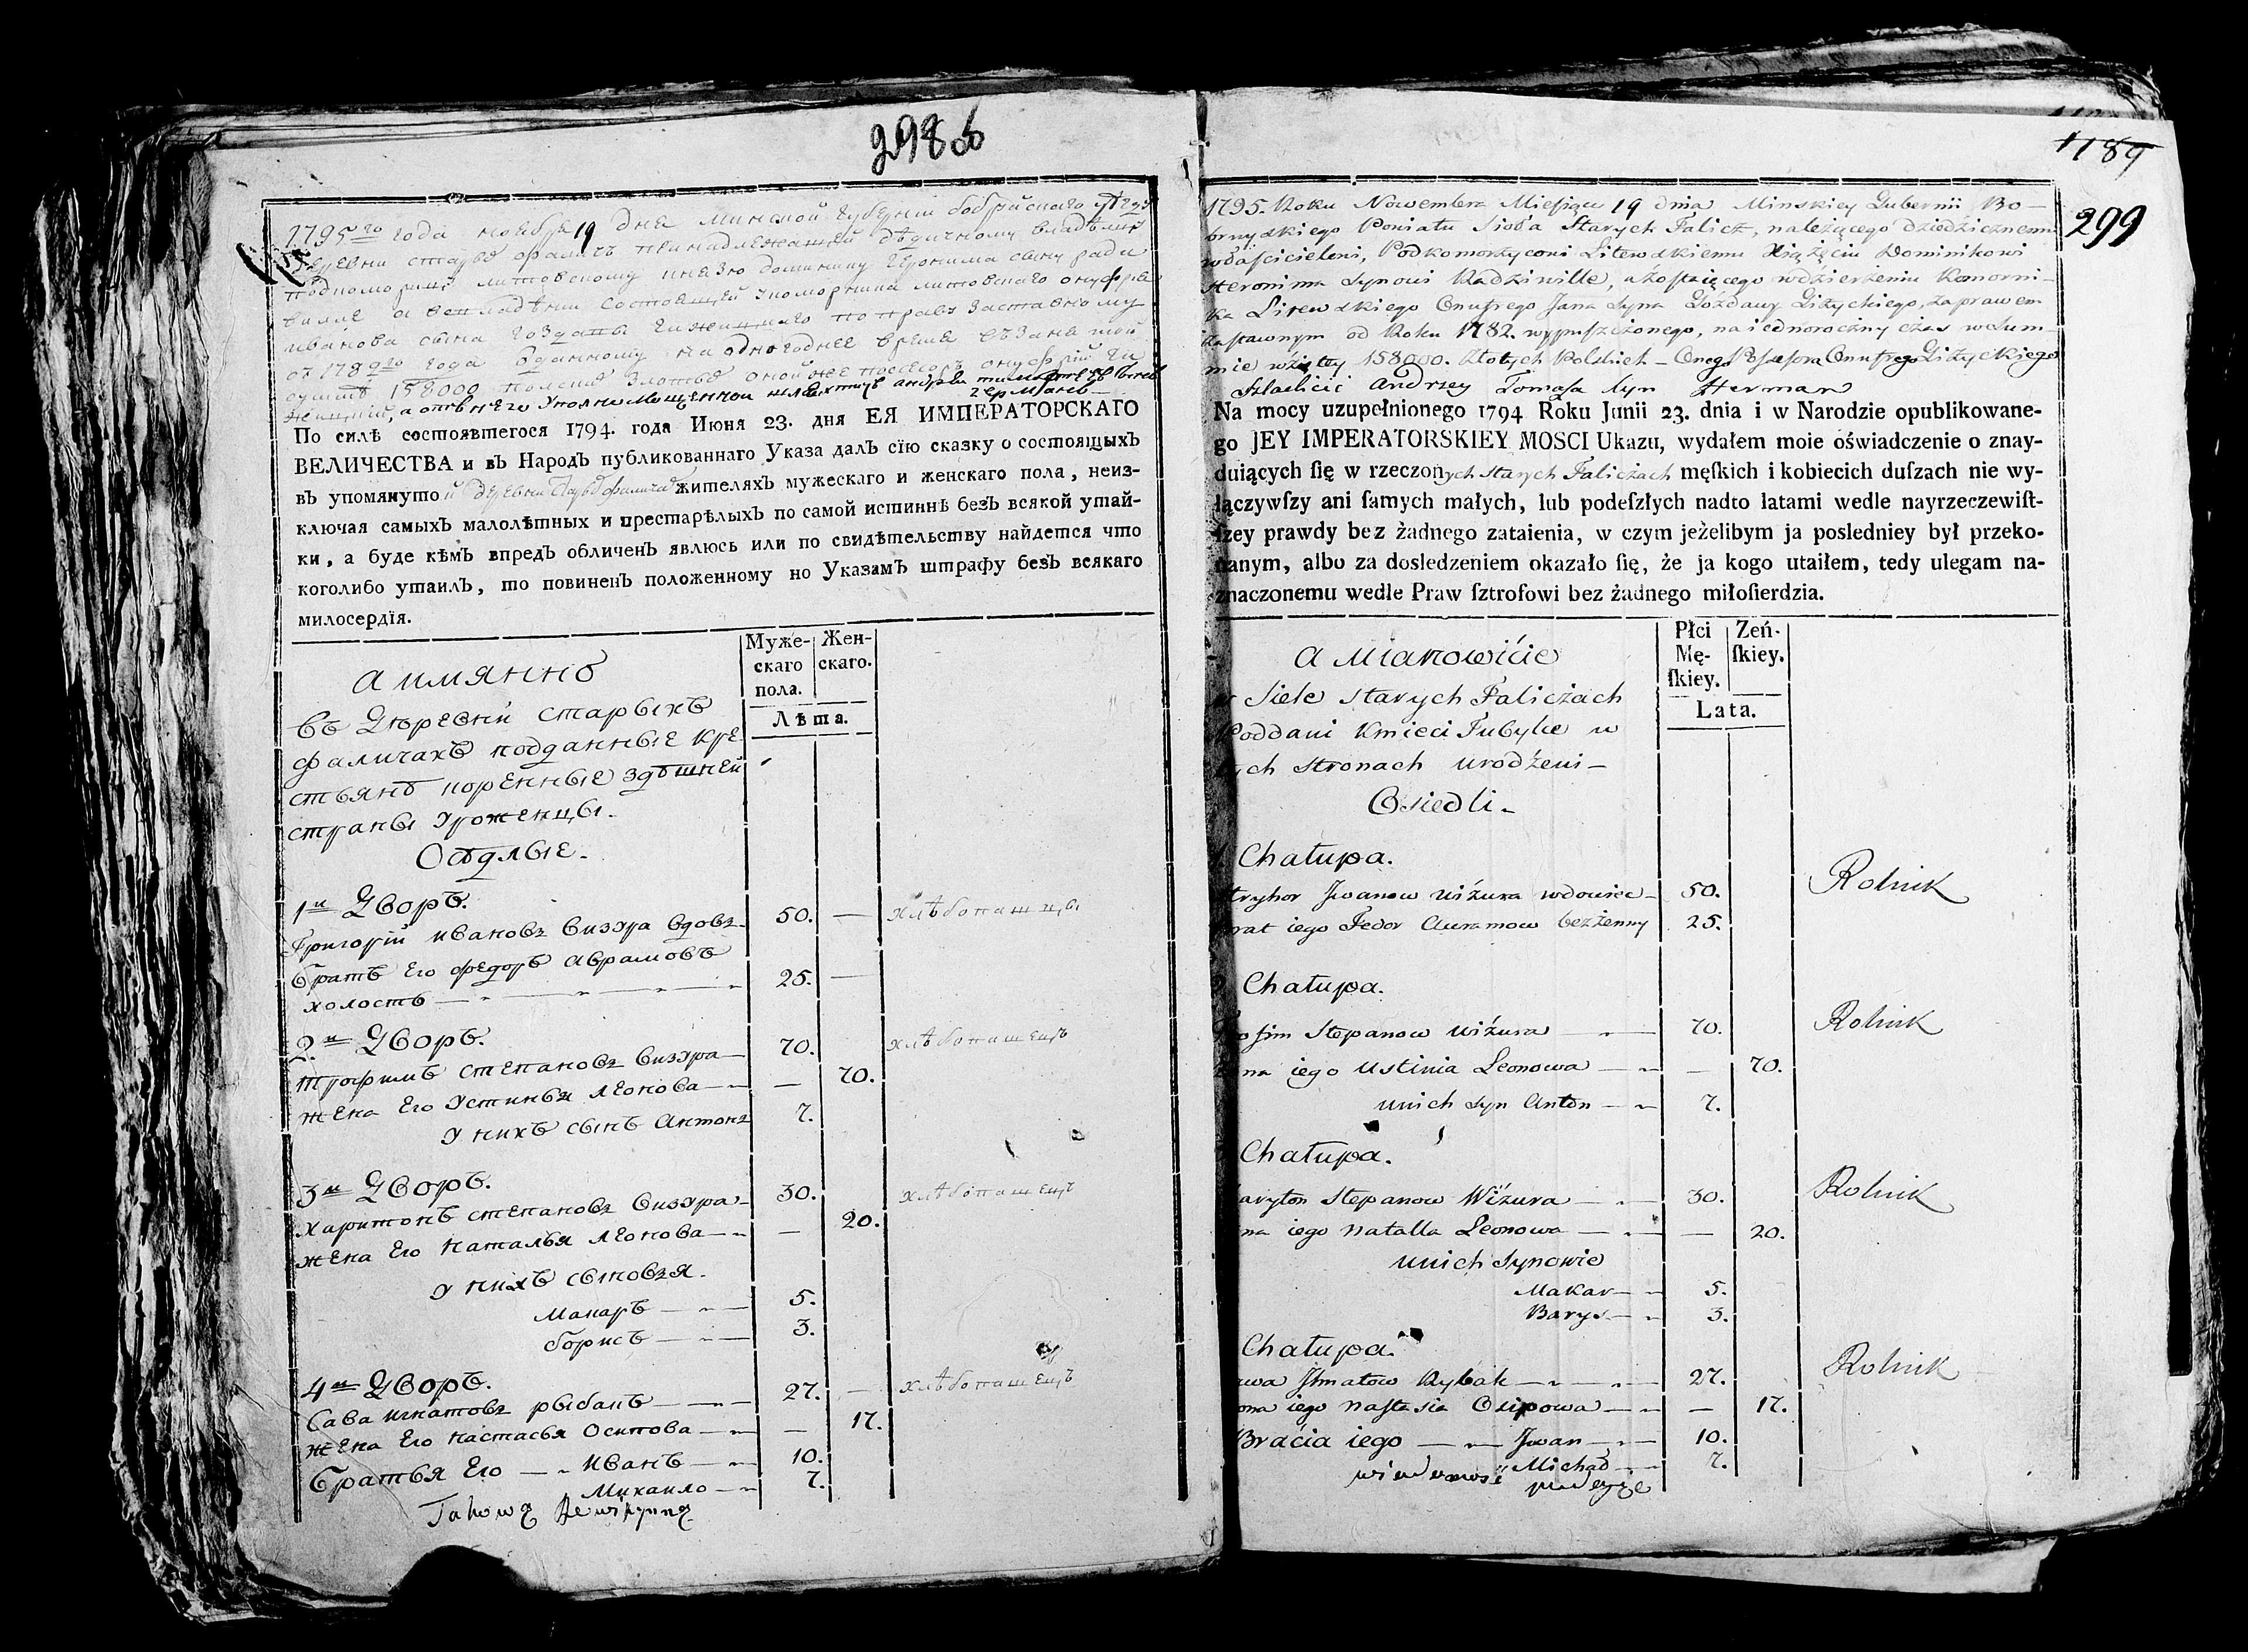 298 об
1795го года ноября 19 дня минской губернии бобруйского
деревни старые фаличъ принадлежащей дѣдичному
подкоморицу литовскому князю доминику геронима сыну ради
виллѣ а во владѣнии состоящей коморника литовского онуфрия
иванова сына гоздавы гижицкаго по праву заставному
от 1782го года на одногоднее время
сумѣ 158000 польскихъ злотыхъ
По силѣ состоявшегося 1794. года Июня 23. дня ЕЯ ИМПЕРАТОРСКАГО
ВЕЛИЧЕСТВА и въ Народъ публикованнаго Указа далъ сїю сказку о состоящыхъ
въ упомянутой деревни жителяхъ мужескаго и женскаго пола, неиз-
ключая самыхъ малолѣтныхъ и престарѣлыхъ по самой истиннѣ безъ всякой утай-
ки, а буде кѣмъ впредь обличенъ явлюсь или по свидѣтельству найдется что
коголибо утаилъ, то повиненъ положенному по Указамъ штрафу безъ всякаго
милосердїя.
Муже-скаго пола. Жен-скаго.
Лѣта.
а имянно
въ деревни старыхъ
фаличахъ подданные кре
стьянѣ коренные здѣшней
страны уроженцы.
Осѣдлые.
1й Дворъ.
Григорій ивановъ визура вдовъ 50. — хлѣбопашцы
братъ его федоръ аврамовъ
холостъ 25. —
2й Дворъ.
трофимъ степановъ визура 70. хлѣбопашецъ
жена его устинья леонова — 70.
у нихъ сынъ антонъ 7.
3й Дворъ.
харитонъ степановъ визура 30. хлѣбопашецъ
жена его наталья леонова — 20.
у нихъ сыновья.
макаръ 5.
борисъ 3.
4й Дворъ.
Сава игнатовъ рыбакъ 27. — хлѣбопашецъ
жена его настасья осипова — 17.
братья его — иванъ 10.
михайло 7.
1189
299
1795. Roku Nowembra Miesiąca 19 dnia Minskiey Gubernii Bo-
bruyskiego Powiatu Sioła Starych Falicz, należącego dziedzicznemu
właścicielowi, Podkomorzycowi Litewskiemu Xiążęciu Dominikowi
Heronima Synowi Radziwille, a zostaiącego w dzierżeniu Komorni-
ka Litewskiego Onufrego Jana Syna Gozdawy Giżyckiego, za prawem
zastawnym od Roku 1782. wypuszczonego, na iednoroczny czas w Sum-
mie wziętey 158000. złotych Polskich — Onego Possessora Onufrego Giżyckiego
Szlachcic Andrzey Tomasza Syn Herman
Na mocy uzupełnionego 1794 Roku Junii 23. dnia i w Narodzie opublikowane-
go JEY IMPERATORSKIEY MOSCI Ukazu, wydałem moie oświadczenie o znay-
duiących ſię w rzeczonych Starych Faliczach męſkich i kobiecich duſzach nie wy-
łączywſzy ani ſamych małych, lub podeſzłych nadto latami wedle nayrzeczewiſt-
ſzey prawdy bez żadnego zataienia, w czym jeżelibym ja posledniey był przeko-
nanym, albo za dosledzeniem okazało ſię, że ja kogo utaiłem, tedy ulegam na-
znaczonemu wedle Praw ſztrofowi bez żadnego miłoſierdzia.
Płci Mę-ſkiey. Zeń-ſkiey.
Lata.
a Mianowicie
w Siele Starych Faliczach
Poddani Kmieci Tubylce w
tych Stronach urodzeni —
Osiedli —
Chałupa.
Hryhor Jwanow Wizura wdowiec 50. Rolnik
brat iego Fedor Auramow bezżenny 25.
Chałupa.
Trofim Stepanow Wizura 70. Rolnik
żona iego Ustinia Leonowa — 70.
u nich syn Anton 7.
Chałupa.
Haryton Stepanow Wizura 30. Rolnik
żona iego Natalla Leonowa — 20.
u nich Synowie
Makar 5.
Barys 3.
Chałupa.
Sawa Jhnatow Rybak 27. Rolnik
żona iego Nastasia Osipowa — 17.
Bracia iego — Jwan 10.
Michał 7.